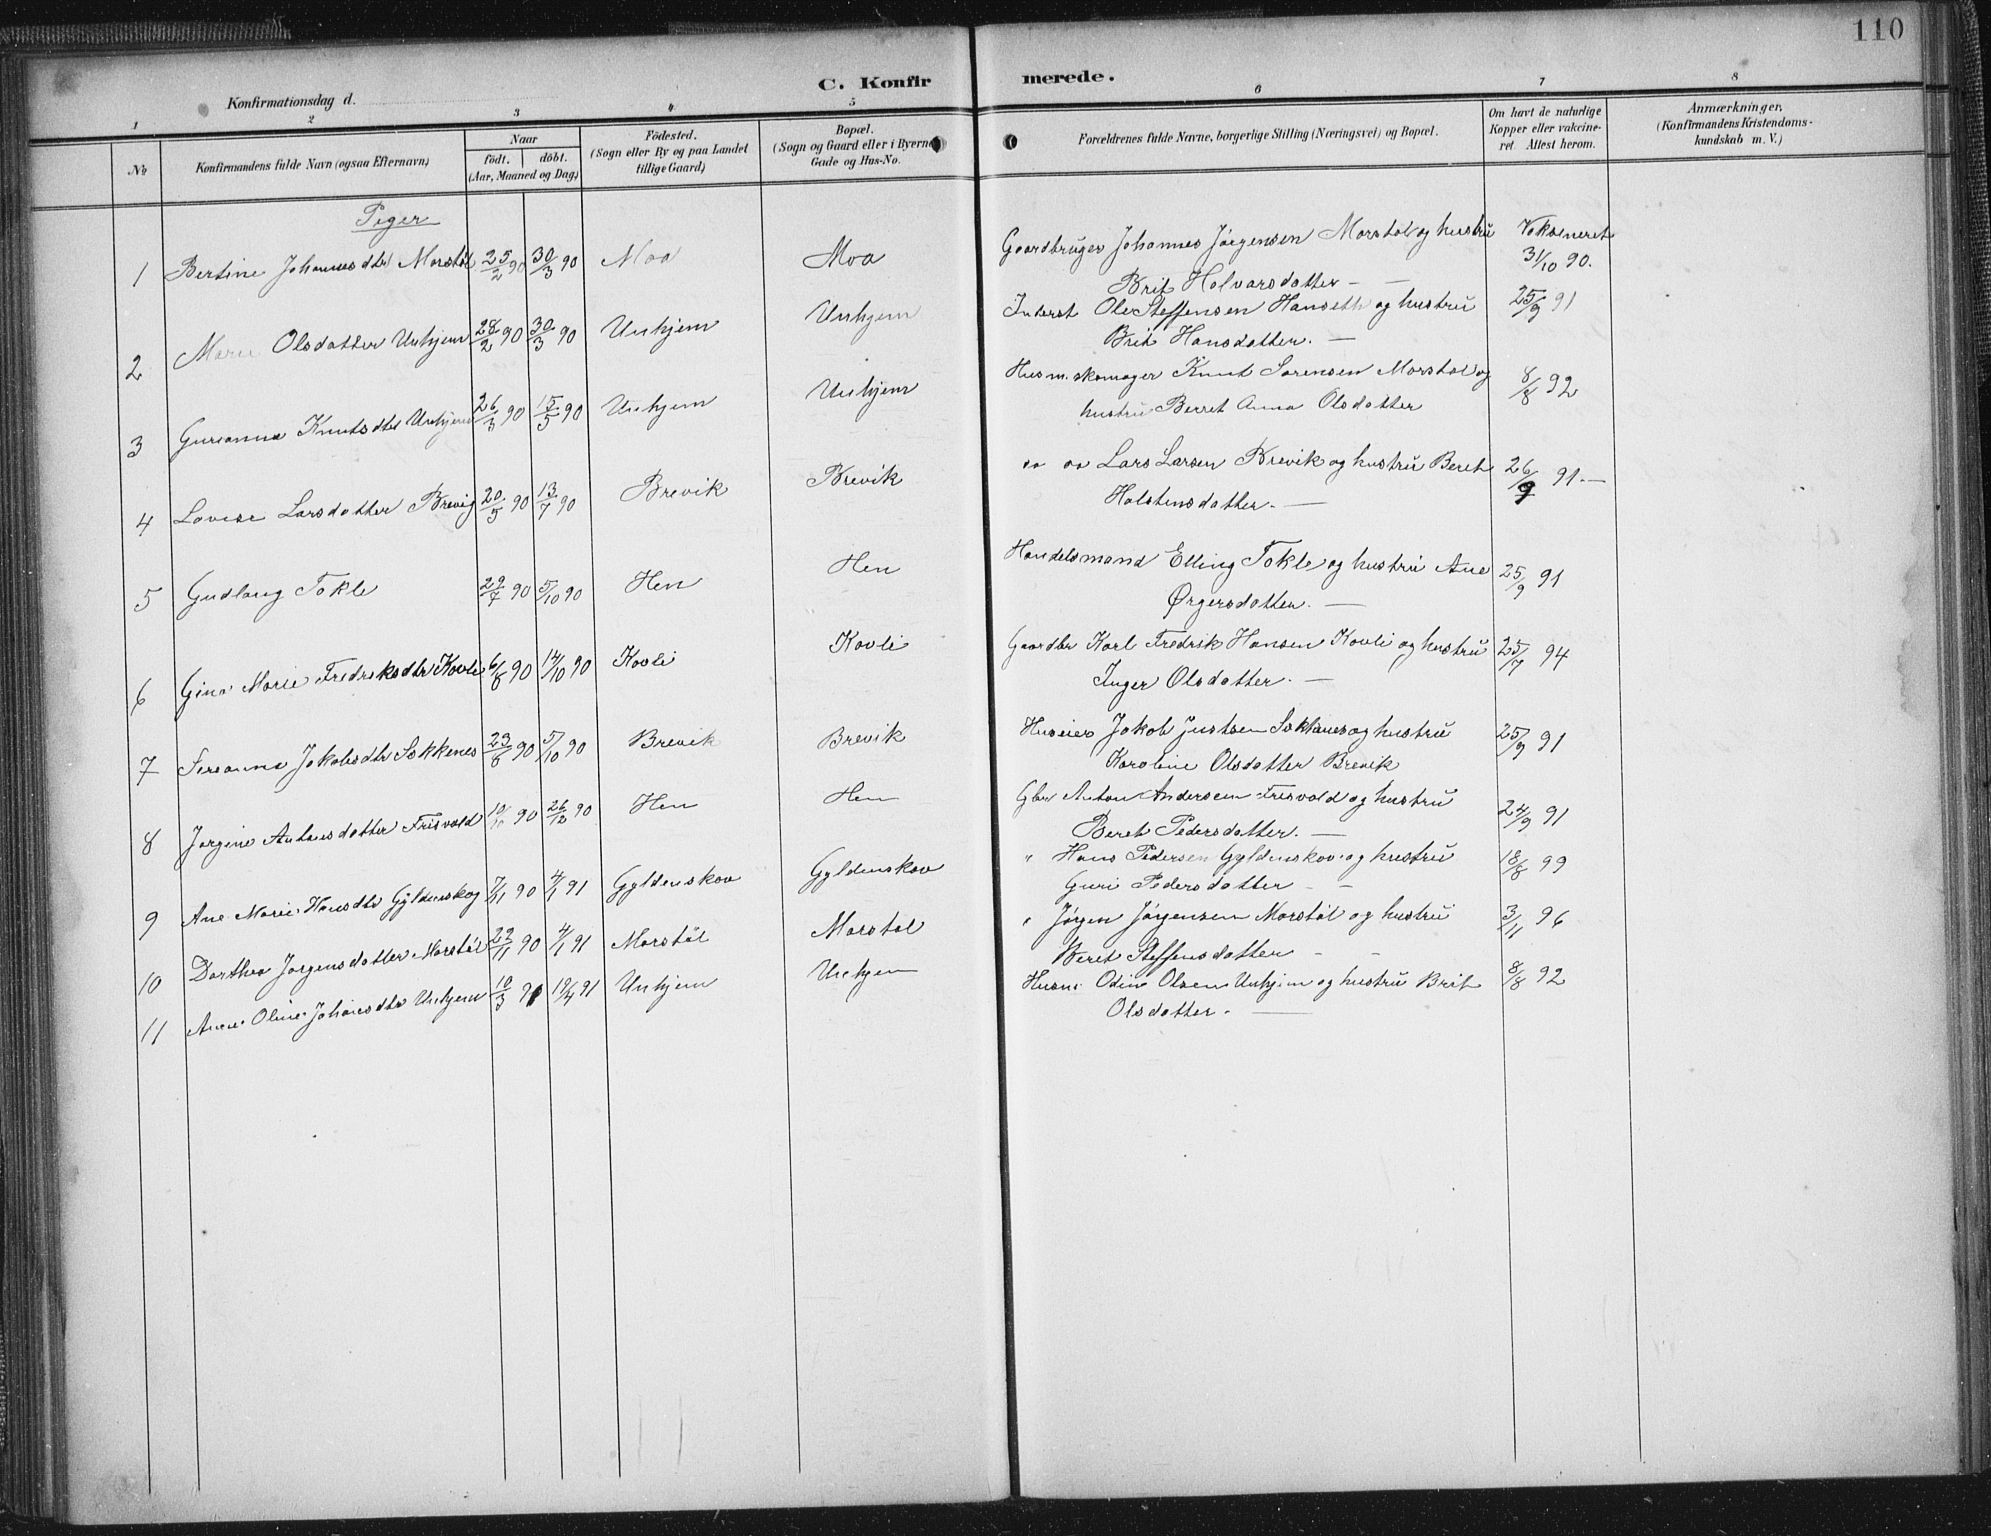 110
C. Konfirmerede.
Konfirmationsdag d.
1 2 3 4 5 6 7 8
No
Konfirmandens fulde Navn (ogsaa Efternavn)
Naar
født. døbt.
(Aar, Maaned og Dag.)
Fødested.
(Sogn eller By og paa Landet
tillige Gaard)
Bopæl.
(Sogn og Gaard eller i Byerne
Gade og Hus-No.
Forældrenes fulde Navne, borgerlige Stilling (Næringsvei) og Bopæl.
Om havt de naturlige
Kopper eller vakcine-
ret Attest herom.
Anmærkninger,
(Konfirmandens Kristendoms-
kundskab m. V.)
Piger
1 Bertine Johannesdtr Morstøl 25/2 90 30/3 90 Moa Moa Gaardbruger Johannes Jørgensen Morstøl og hustru Vaksineret
Brit Halvarsdatter — — 31/10 90.
2 Marie Olsdatter Unhjem 28/2 90 30/3 90 Unhjem Unhjem Inderst Ole Steffensen Hanseth og hustru 25/9 91
Brit Hansdatter. —
3 Gurianna Knutsdtr Unhjem 26/3 90 15/5 90 Unhjem Unhjem Husm. skomager Knut Sørensen Morstøl og 8/8 92
hustru Berret Anna Olsdatter
4 Lovise Larsdatter Brevig 20/5 90 13/7 90 Brevik Brevik do do Lars Larsen Brevik og hustru Beret 26/9 91.—
Halstensdatter. —
5 Gudlaug Tokle 29/7 90 5/10 90 Hen Hen Handelsmand Elling Tokle og hustru Ane 25/9 91
Ørgersdatter. —
6 Gina Marie Fredriksdtr Kovli 6/8 90 14/10 90 Kovli Kovli Gaardbr Karl Fredrik Hansen Kovli og hustru 25/7 94
Inger Olsdatter. —
7 Jakobsdtr Sekkenes 23/6 90 5/10 90 Brevik Brevik Huseier Jakob Justsen Sekkenes og hustru 25/9 91
Karoline Olsdatter Brevik
8 Jørgine Antonsdatter Frisvold 10/10 90 26/12 90 Hen Hen Gbr Anton Andersen Frisvold og hustru 24/9 91
Beret Pedersdatter. —
9 Ane Marie Hansdtr Gyldenskog 7/11 90 4/1 91 Gyldenskov Gyldenskov " Hans Pedersen Gyldenskov og hustru 18/8 99
Guri Pedersdatter — —
10 Dorthea Jørgensdatter Morstøl 22/11 90 4/1 91 Morstøl Morstøl " Jørgen Jørgensen Morstøl og hustru 3/11 96
Beret Steffensdatter — —
11 Anne Oline Unhjem 10/3 91 19/4 91 Unhjem Unhjem Husm. Odin Olsen Unhjem og hustru Brit 8/8 92
Olsdatter. —